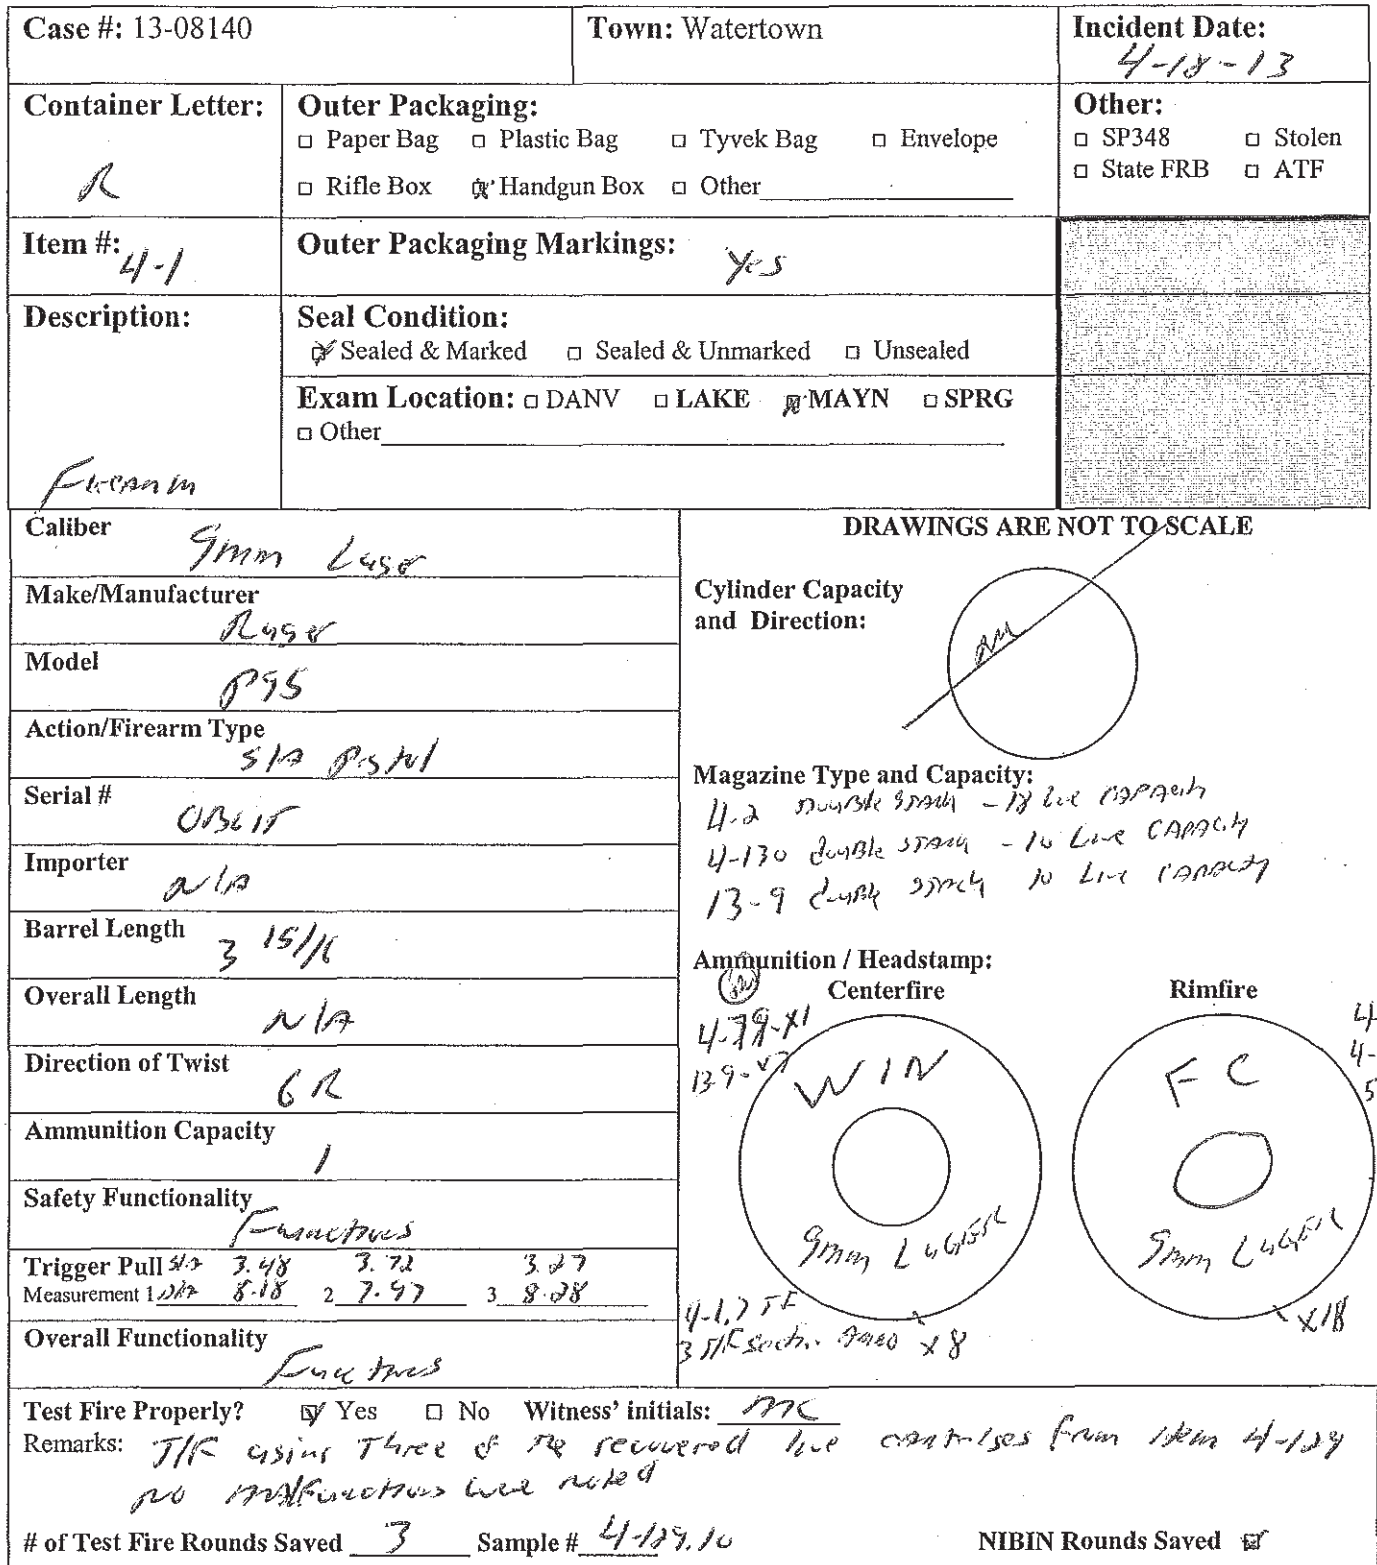 Case #: 13-08140
Town: Watertown
Incident Date:
4-18-13
Container Letter:
R
Outer Packaging:
□ Paper Bag □ Plastic Bag □ Tyvek Bag □ Envelope
□ Rifle Box ☒ Handgun Box □ Other
Other:
□ SP348 □ Stolen
□ State FRB □ ATF
Item #: 4-1
Outer Packaging Markings: Yes
Description:
Firearm
Seal Condition:
☒ Sealed & Marked □ Sealed & Unmarked □ Unsealed
Exam Location: □ DANV □ LAKE ☒ MAYN □ SPRG
□ Other
Caliber
9mm Luger
Make/Manufacturer
Ruger
Model
P95
Action/Firearm Type
S/A Pistol
Serial #
OBLIT
Importer
N/A
Barrel Length 3 15/16
Overall Length
N/A
Direction of Twist
6R
Ammunition Capacity
1
Safety Functionality
Functions
Trigger Pull S/A 3.48 3.72 3.27
Measurement 1 D/A 8.18 2 7.97 3 8.28
Overall Functionality
Functions
DRAWINGS ARE NOT TO SCALE
Cylinder Capacity
and Direction:
Magazine Type and Capacity:
4-2 Double Stack - Live Capacity
4-130 double stack - 10 Live Capacity
13-9 double stack 10 Live Capacity
Ammunition / Headstamp:
Centerfire
Rimfire
4-79-x1
13-9-x7
WIN
9mm LUGER
FC
9mm LUGER
4-
4-
5
4-1.7 TF
3 T/F Section Ammo x8
x18
Test Fire Properly? ☑ Yes □ No Witness' initials: MC
Remarks: T/F using Three of the recovered live cartridges from item 4-129
no malfunctions were noted
# of Test Fire Rounds Saved 3 Sample # 4-129.10 NIBIN Rounds Saved ☑